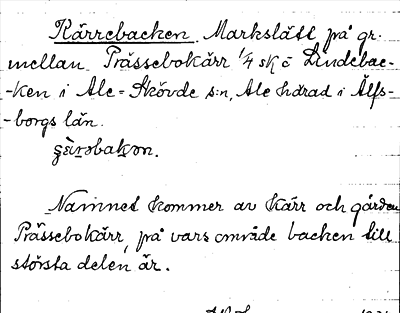 Kärrebacken. Markslätt på gr.
mellan Prässebokärr 1/4 sk o Lindebac-
-ken i Ale-Skövde s:n, Ale härad i Älfs-
-borgs län.
Namnet kommer av Kärr och gården
Prässebokärr, på vars område backen till
största delen är.